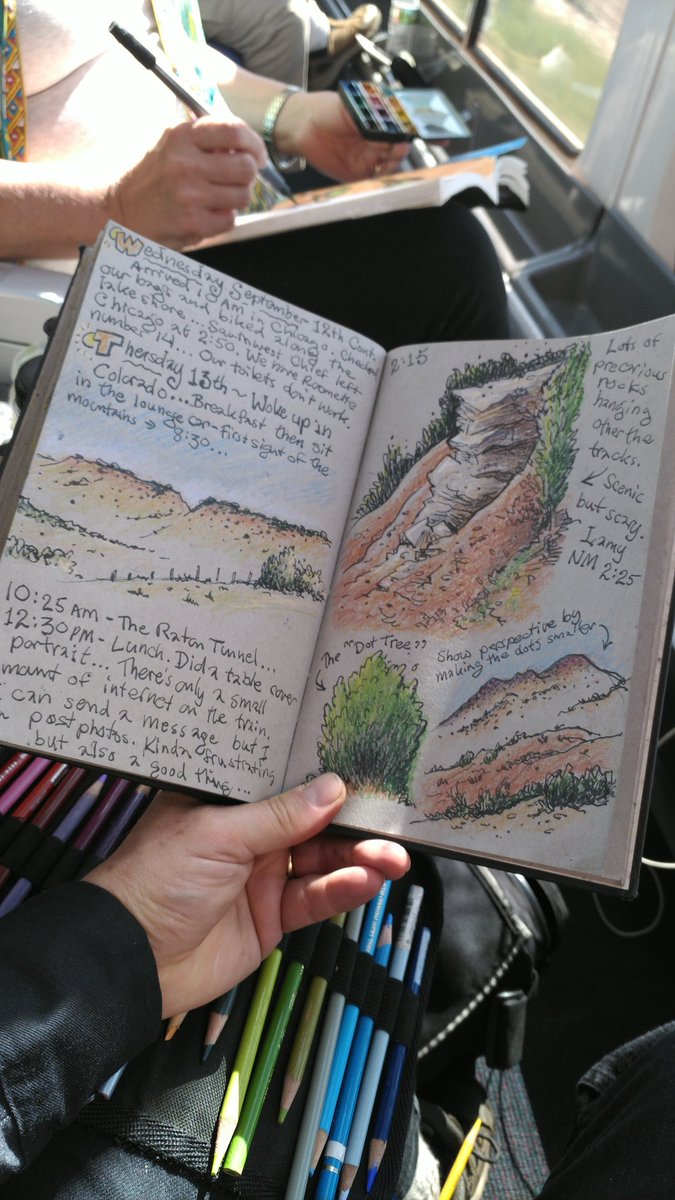 Wednesday September 12th Cont.
Arrived 9 AM in Chicago, checked
our bags and biked along the
lakeshore... Southwest Chief left
Chicago at 2:50. We have Roomette
number 14... Our toilets don't work.
Thersday 13th ~ Woke up in
Colorado... Breakfast then sit
in the lounge car - first sight of the
mountains → 8:30...
10:25 AM - The Raton Tunnel...
12:30 PM - Lunch. Did a table cover
portrait... There's only a small
mount of internet on the train.
I can send a message but I
post photos. Kinda frustrating
but also a good thing...
2:15
Lots of
precarious
rocks
hanging
other the
tracks.
Scenic
but scary.
Lamy
NM 2:25
The "Dot Tree"
Show perspective by
making the dots smaller